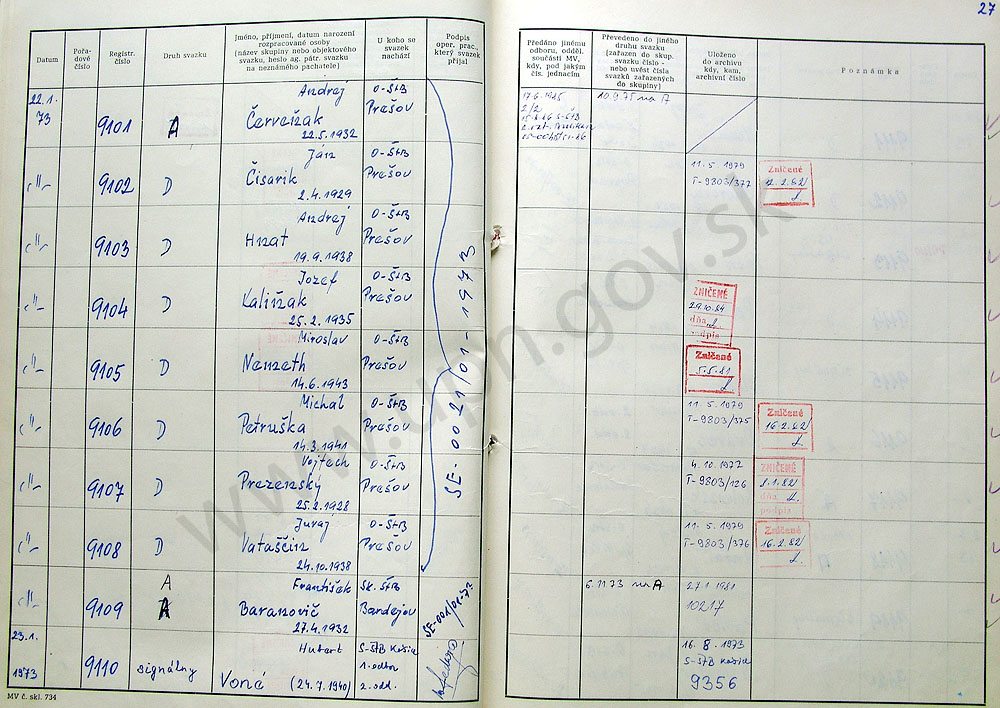 27
Datum
Pořadové číslo
Registr. číslo
Druh svazku
Jméno, příjmení, datum narození
rozpracované osoby
(název skupiny nebo objektového
svazku, heslo ag. pátr. svazku
na neznámého pachatele)
U koho se
svazek
nachází
Podpis
oper. prac.,
který svazek
přijal
Předáno jinému
odboru, odděl.
součásti MV,
kdy, pod jakým
čís. jednacím
Převedeno do jiného
druhu svazku
(zařazen do skup.
svazku číslo -
nebo uvést čísla
svazků zařazených
do skupiny)
Uloženo
do archivu
kdy, kam,
archivní číslo
Poznámka
22.1. 73 9101 A Andrej Červeňak 22.5.1932 O-ŠtB Prešov 10.9.75 na A
-"- 9102 D Ján Čisarik 2.4.1929 O-ŠtB Prešov 11.5.1979 T-9803/377 Zničené 12.2.82
-"- 9103 D Andrej Hnat 19.9.1938 O-ŠtB Prešov
-"- 9104 D Jozef Kaliňak 25.2.1935 O-ŠtB Prešov ZNIČENÉ 29.10.84 dňa podpis
-"- 9105 D Miroslav Nemeth 14.6.1943 O-ŠtB Prešov Zničené 5.5.81
-"- 9106 D Michal Petruška 14.3.1941 O-ŠtB Prešov 11.5.1979 T-9803/375 Zničené 16.2.82
-"- 9107 D Vojtech Prezensky 25.2.1928 O-ŠtB Prešov 4.10.1972 T-9803/126 ZNIČENÉ 8.1.82 dňa podpis
-"- 9108 D Juraj Vataščin 24.10.1938 O-ŠtB Prešov 11.5.1979 T-9803/376 Zničené 16.2.82
SE-0021/01-1973
-"- 9109 A A František Baranovič 27.4.1932 Sk. ŠtB Bardejov SE-001/01-73 6.11.73 na A 27.1.1981 10217
23.1. 1973 9110 signálny Hubert Voně (24.7.1940) S-ŠtB Košice 1. odbor 2. odd. 16.8.1973 S-ŠtB Košice 9356
MV č. skl. 734
www.upn.gov.sk